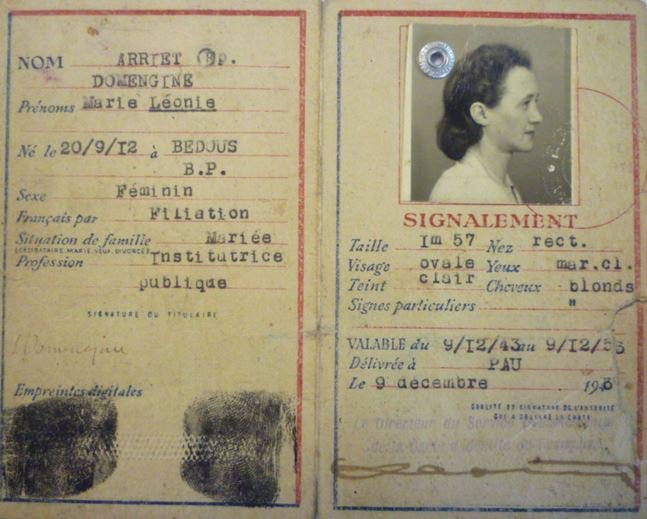 NOM ARRIET Ep.
DOMENGINE
Prénoms Marie Léonie
Né le 20/9/12 à BEDOUS
B.P.
Sexe Féminin
Français par Filiation
Situation de famille Mariée
(CÉLIBATAIRE, MARIÉ, VEUF, DIVORCÉ)
Profession Institutrice
publique
SIGNATURE DU TITULAIRE
Empreintes digitales
SIGNALEMENT
Taille Im 57 Nez rect.
Visage ovale Yeux mar.cl.
Teint clair Cheveux blonds
Signes particuliers "
VALABLE du 9/12/43 au 9/12/53
Délivrée à PAU
Le 9 décembre 194
QUALITÉ ET SIGNATURE DE L'AUTORITÉ
QUI A DÉLIVRÉ LA CARTE
Le Directeur du Service
de la Carte d'Identité de Français